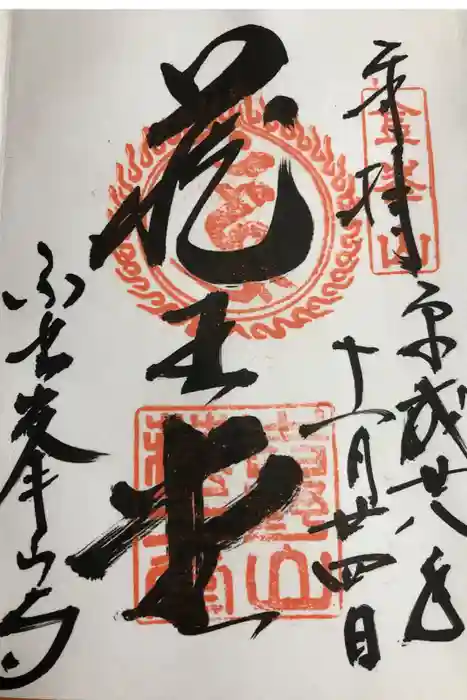 奉拝
金峯山
平成廿八年
十一月廿四日
蔵王堂
金峯山寺